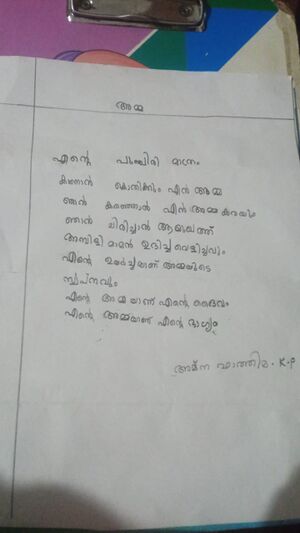 അമ്മ
എന്റെ പുഞ്ചിരി മാത്രം
കാണാൻ കൊതിക്കും എൻ അമ്മ
ഞൻ കരഞ്ഞാൽ എൻ അമ്മ കരയും
ഞാൻ ചിരിച്ചാൽ ആമുഖത്ത്
അമ്പിളി മാമൻ ഉദിച്ച വെളിച്ചവും
എന്റെ ഉയർച്ചയാണ് അമ്മയുടെ
സ്വപ്നവും
എന്റെ അമ്മയാണ് എന്റെ ദൈവം
എന്റെ അമ്മയാണ് എന്റെ ഭാഗ്യം
ഫാത്തിമ. K.P